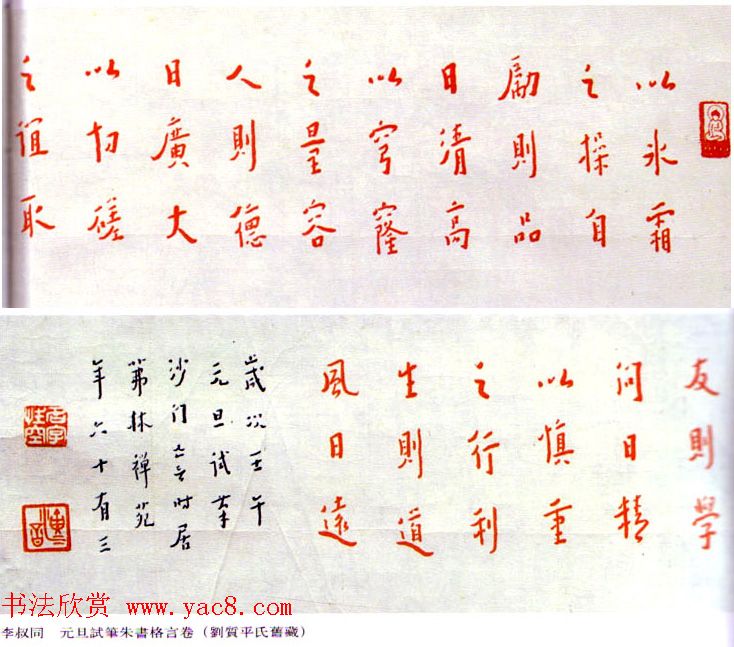 以氷霜
之操自
勵則品
日清高
以穹窿
之量容
人則德
日廣大
以切磋
之誼取
友則學
問日精
以慎重
之行利
生則道
風日遠
歲次壬午
元旦試筆
沙門亡言時居
茀林禪苑
年六十有三
名字性空
演音
书法欣赏 www.yac8.com
李叔同 元旦試筆朱書格言卷（劉質平氏舊藏）